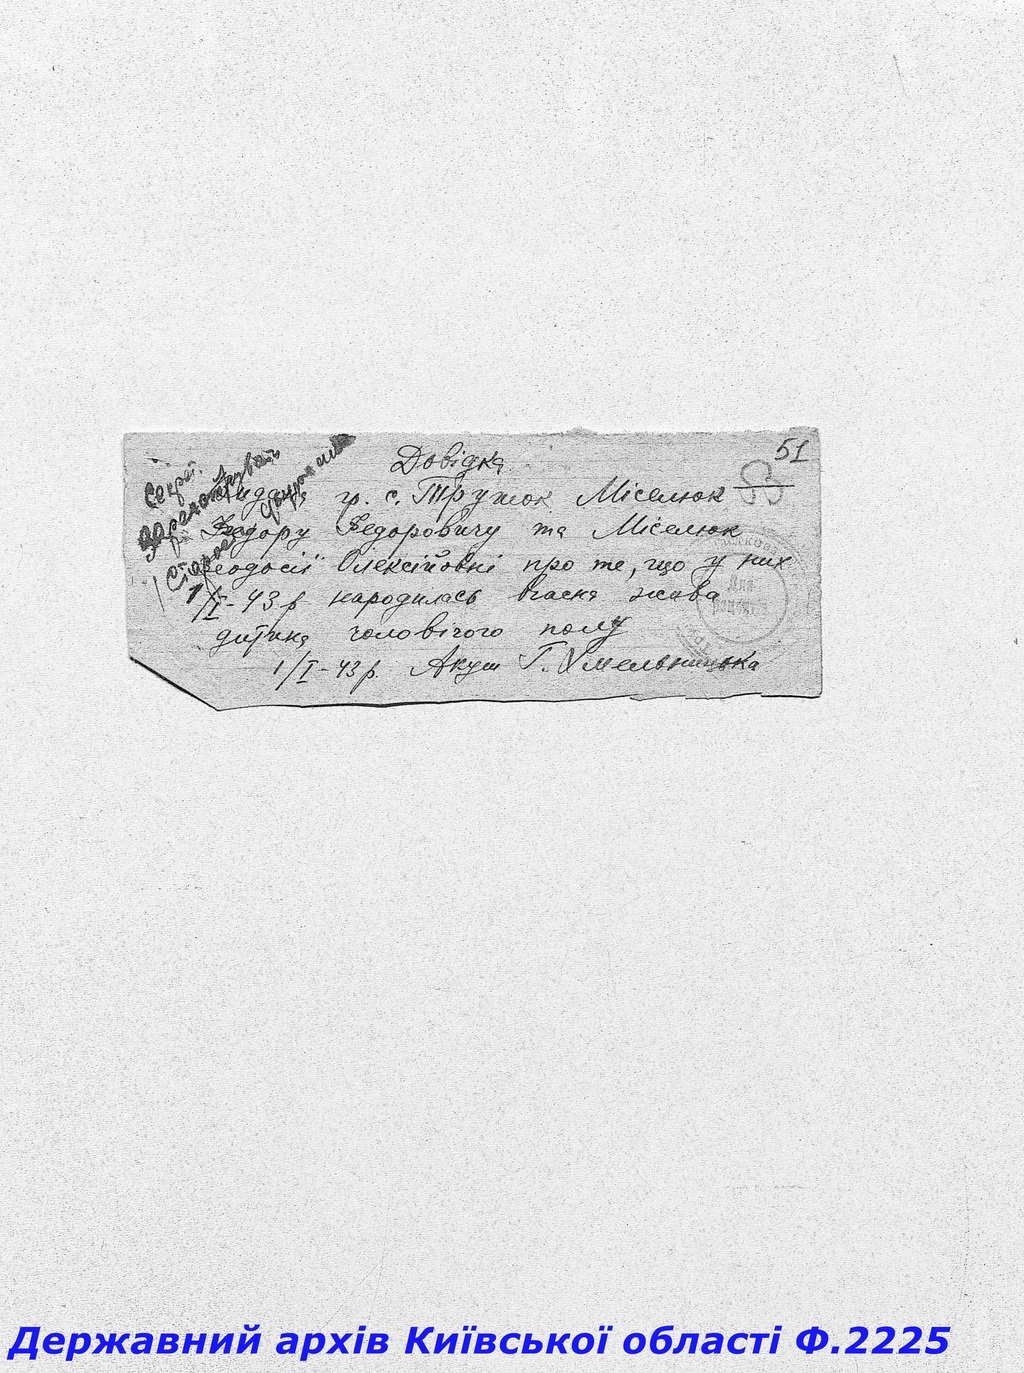 51
83
Довідка
Видана гр. с. Трушок Міселюк
Федору Федоровичу та Міселюк
Феодосії Олексійовні про те, що у них
1/I-43 р народилась вчасна жива
дитина чоловічого полу
1/I-43 р. Акуш Г. Хмельницька
Секрет.
Зареєструвать
Староста
Для
рецептів
Державний архів Київської області Ф.2225